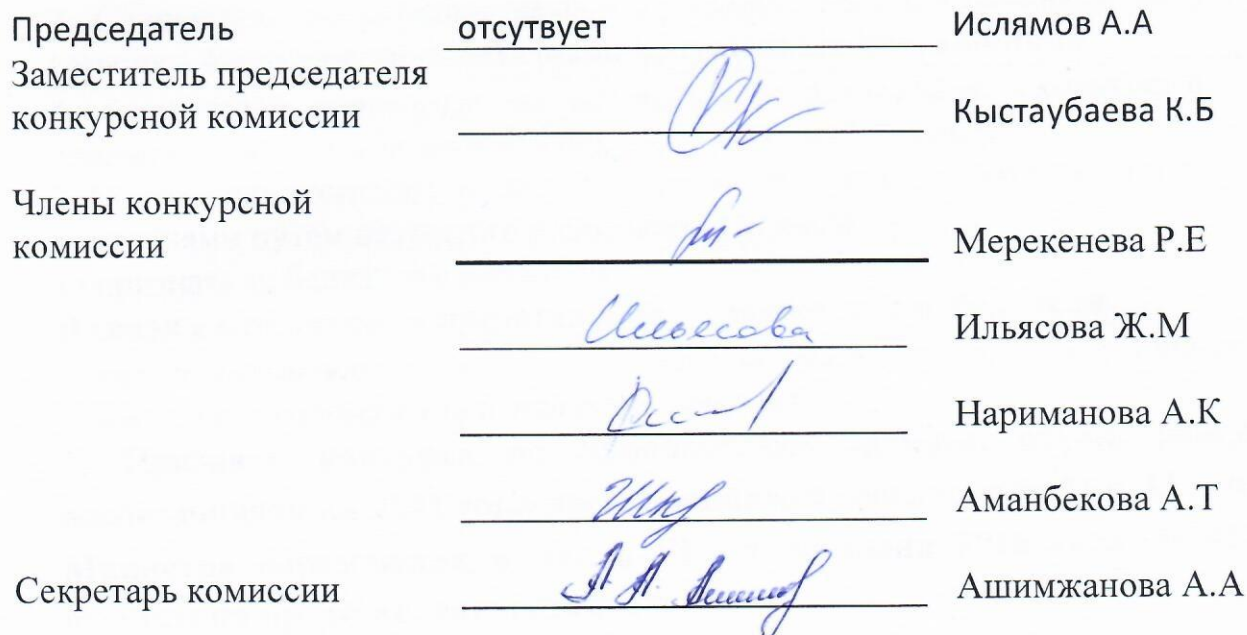 Председатель отсутвует Ислямов А.А
Заместитель председателя
конкурсной комиссии Кыстаубаева К.Б
Члены конкурсной
комиссии Мерекенева Р.Е
Ильясова Ильясова Ж.М
Нариманова А.К
Аманбекова А.Т
Секретарь комиссии Ашимжанова А.А